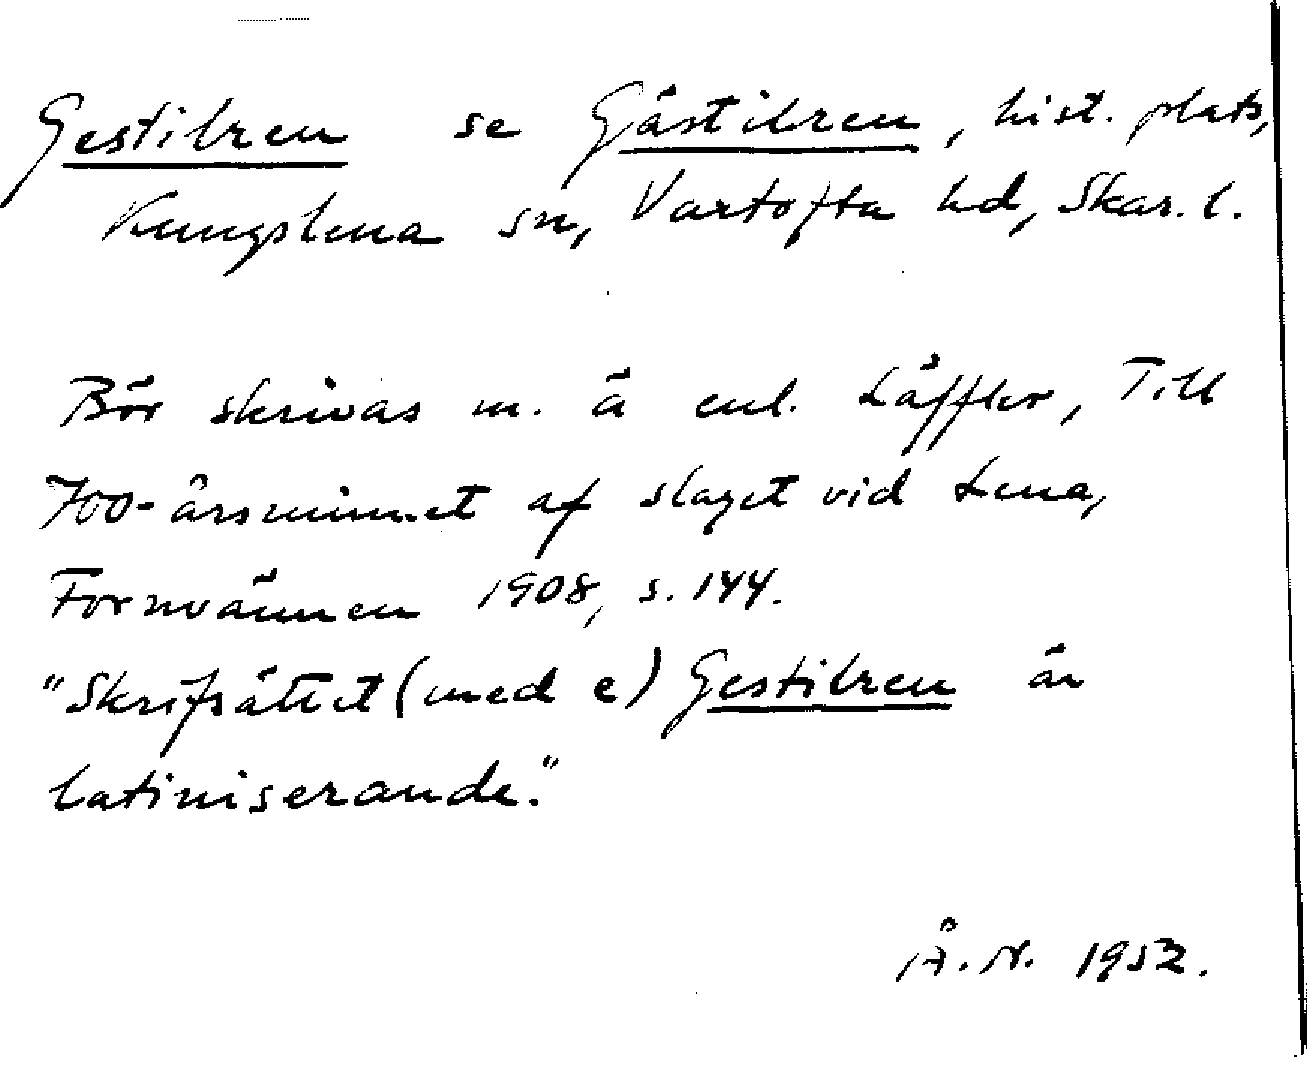 Gestilren se Gästilren, hist. plats,
Kungslena sn, Vartofta hd, Skar. l.
Bör skrivas m. ä enl. Läffler, Till
700-årsminnet af slaget vid Lena,
Fornvännen 1908, s. 144.
"Skrifsättet (med e) Gestilren är
latiniserande."
Å. N. 1952.